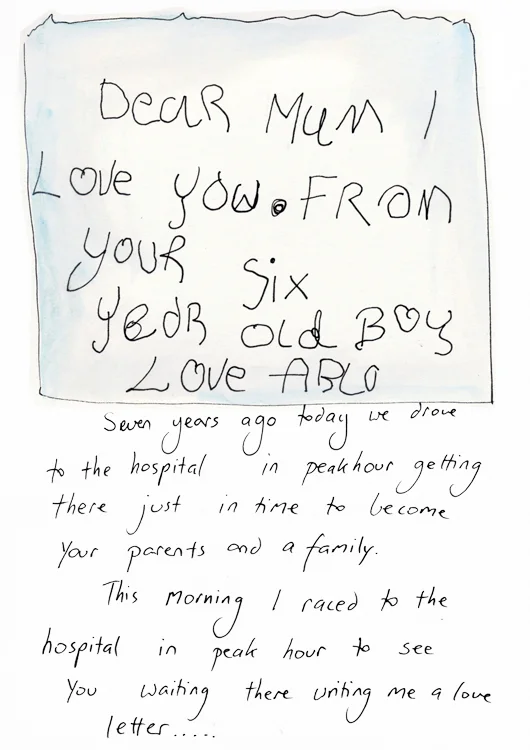 Dear Mum I
Love you. From
your six
year old Boy
Love ABLO
Seven years ago today we drove
to the hospital in peakhour getting
there just in time to become
your parents and a family.
This morning I raced to the
hospital in peak hour to see
you waiting there writing me a love
letter.....